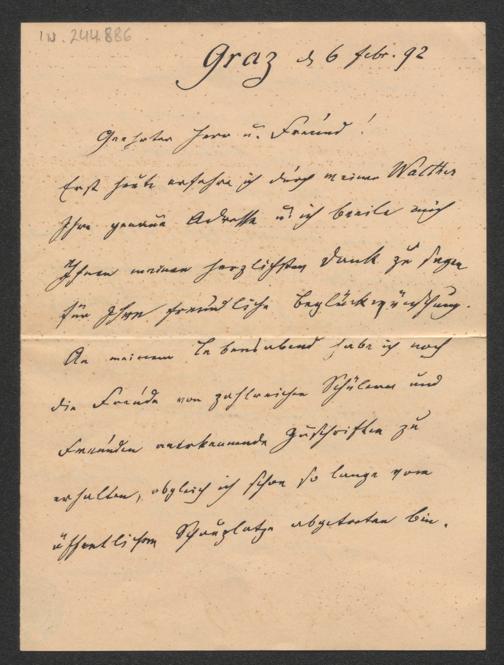 IN. 244.886
Graz d 6 Febr. 92
Geehrter Herr u. Freund!
Erst heute erfahre ich durch meinen Walther
Ihre genaue Adresse u. ich beeile mich
Ihnen meinen herzlichsten Dank zu sagen
für Ihre freundliche Beglückwünschung.
An meinem Lebensabend habe ich noch
die Freude von zahlreichen Schülern und
Freunden anerkennende Zuschriften zu
erhalten, obgleich ich schon so lange vom
öffentlichen Schauplatze abgetreten bin.